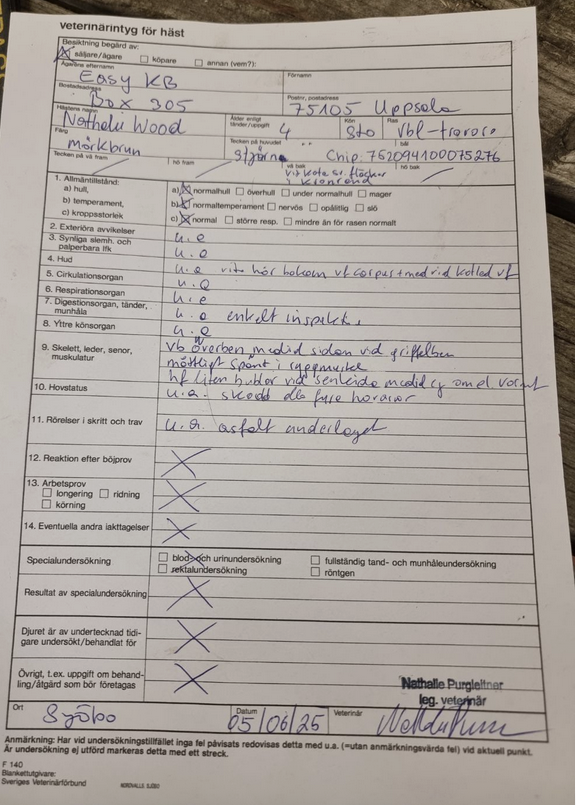 veterinärintyg för häst
Besiktning begärd av:
säljare/ägare köpare annan (vem?):
Ägarens efternamn Förnamn
Easy KB
Bostadsadress Postnr, postadress
Box 305 75105 Uppsala
Hästens namn Ålder enligt tänder/uppgift Kön Ras
Nathalie Wood 4 Sto vbl-travare
Färg Tecken på huvudet
mörkbrun Stjärna Chip: 752094100075276
Tecken på vä fram hö fram vä bak hö bak
vit kota sv. fläckar
i kronrand
1. Allmäntillstånd:
a) hull, a) normalhull överhull under normalhull mager
b) temperament, b) normaltemperament nervös opålitlig slö
c) kroppsstorlek c) normal större resp. mindre än för rasen normalt
2. Exteriöra avvikelser u.a
3. Synliga slemh. och palperbara lfk u.a
4. Hud u.a vita hår bakom vf carpus + medvid kotled vf
5. Cirkulationsorgan u.a
6. Respirationsorgan u.a
7. Digestionsorgan, tänder, munhåla u.a enkelt inspekt.
8. Yttre könsorgan u.a
9. Skelett, leder, senor, muskulatur vb överben medid sidan vid griffelben
måttligt spänt i ryggmuskel
hf liten vid senskida medid ej öm el. varmt
10. Hovstatus u.a. skodd alla fyra hovar
11. Rörelser i skritt och trav u.a. asfalt underlaget
12. Reaktion efter böjprov
13. Arbetsprov
longering ridning
körning
14. Eventuella andra iakttagelser
Specialundersökning blod- och urinundersökning fullständig tand- och munhåleundersökning
sektalundersökning röntgen
Resultat av specialundersökning
Djuret är av undertecknad tidi-
gare undersökt/behandlat för
Övrigt, t.ex. uppgift om behand-
ling/åtgärd som bör företagas
Nathalie Purgleitner
leg. veterinär
Ort Datum Veterinär
Sjöbo 05/06/25
Anmärkning: Har vid undersökningstillfället inga fel påvisats redovisas detta med u.a. (=utan anmärkningsvärda fel) vid aktuell punkt.
Är undersökning ej utförd markeras detta med ett streck.
F 140
Blankettutgivare:
Sveriges Veterinärförbund